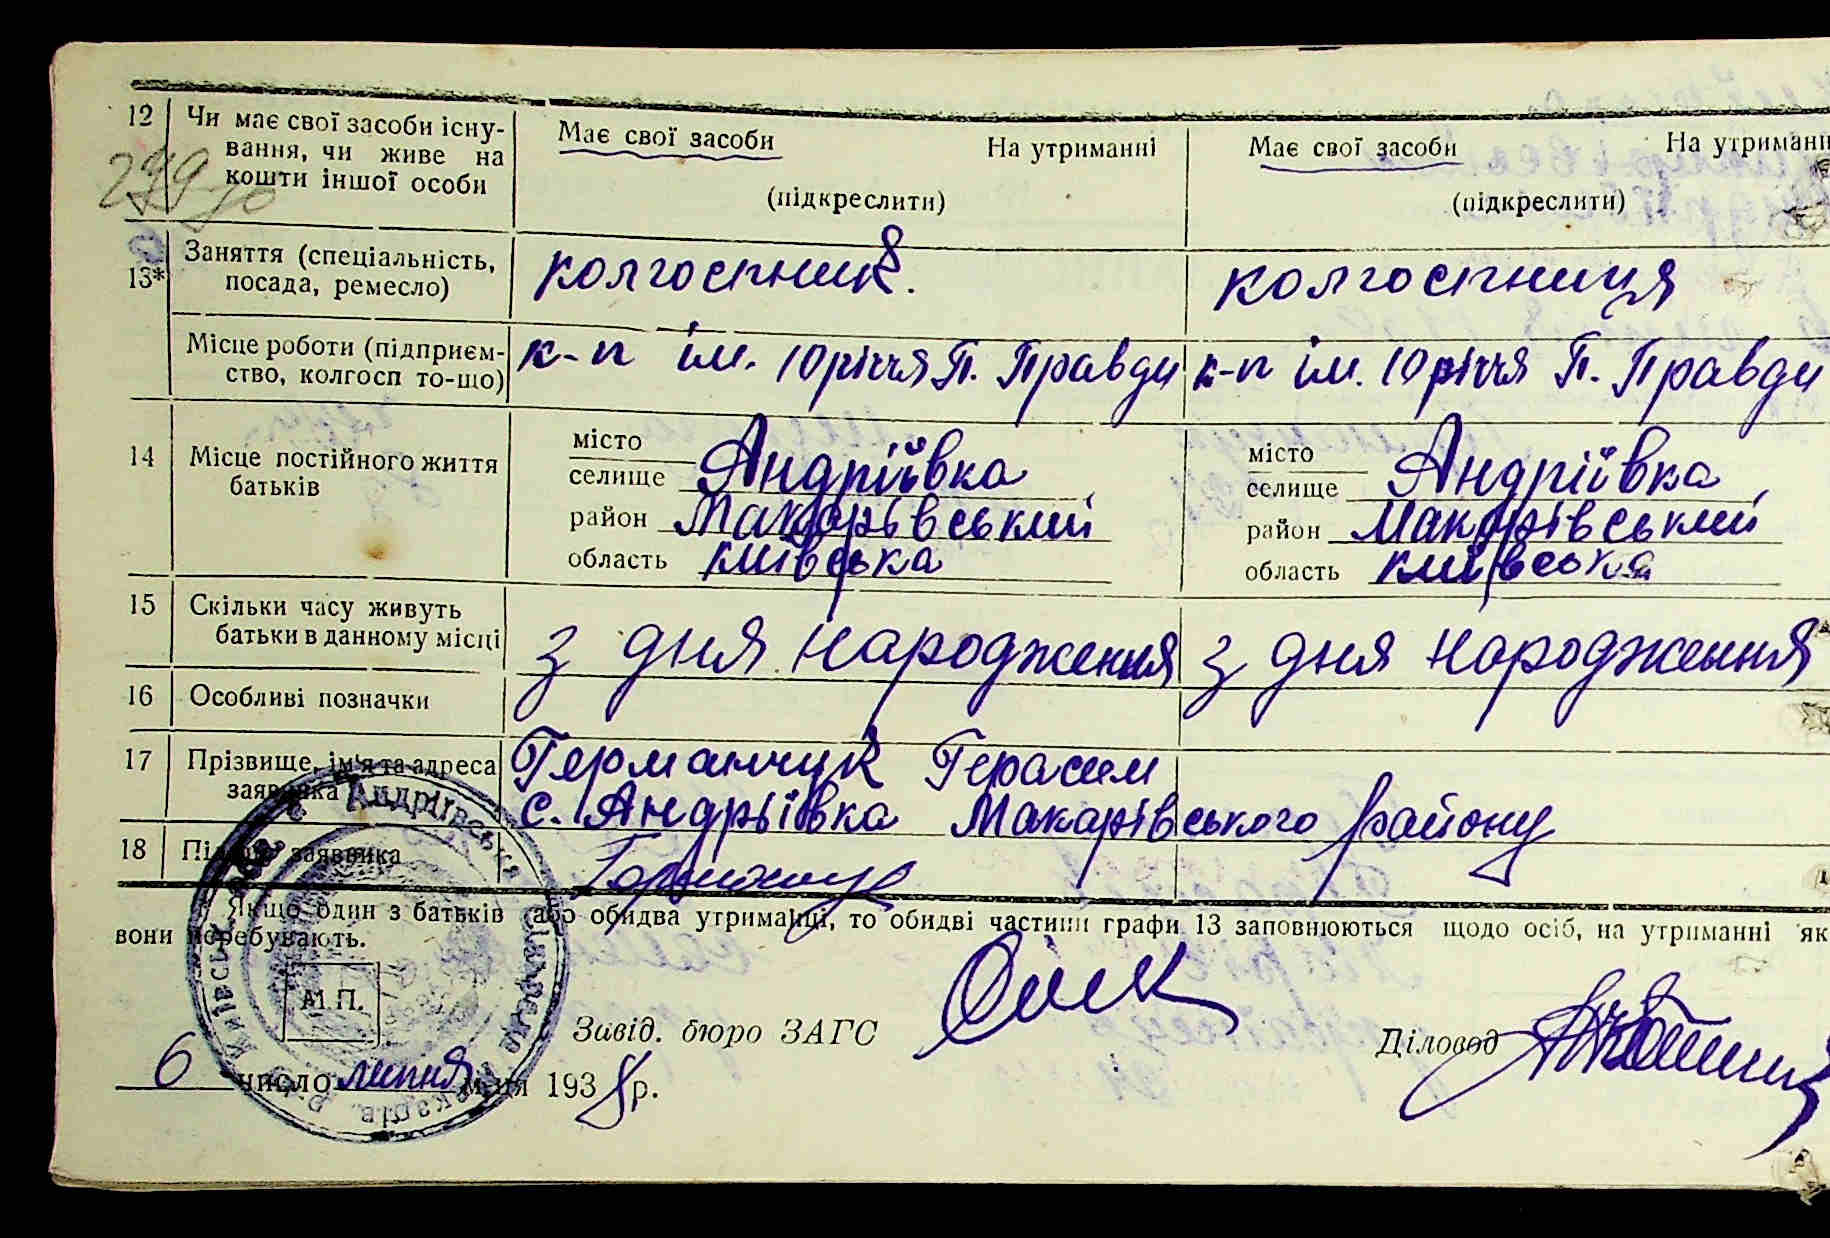 12 Чи має свої засоби існу- Має свої засоби На утриманні Має свої засоби На утриманн
вання, чи живе на
кошти іншої особи (підкреслити) (підкреслити)
13* Заняття (спеціальність, колгоспник. колгоспниця
посада, ремесло)
Місце роботи (підприєм- к-п ім. 10річчя П. Правди к-п ім. 10річчя П. Правди
ство, колгосп то-що)
14 Місце постійного життя місто місто
батьків селище Андріївка, селище Андріївка,
район Макарівський район Макарівський
область київська область київська
15 Скільки часу живуть з дня народження з дня народження
батьки в данному місці
16 Особливі позначки
17 Прізвище, ім'я та адреса Германчук Герасим
заявника с. Андріївка Макарівського району
18 Підпис заявника
Якщо один з батьків або обидва утриманці, то обидві частини графи 13 заповнюються щодо осіб, на утриманні як
вони перебувають.
М.П.
Завід. бюро ЗАГС Діловод
6 число липня м-ця 1938 р.